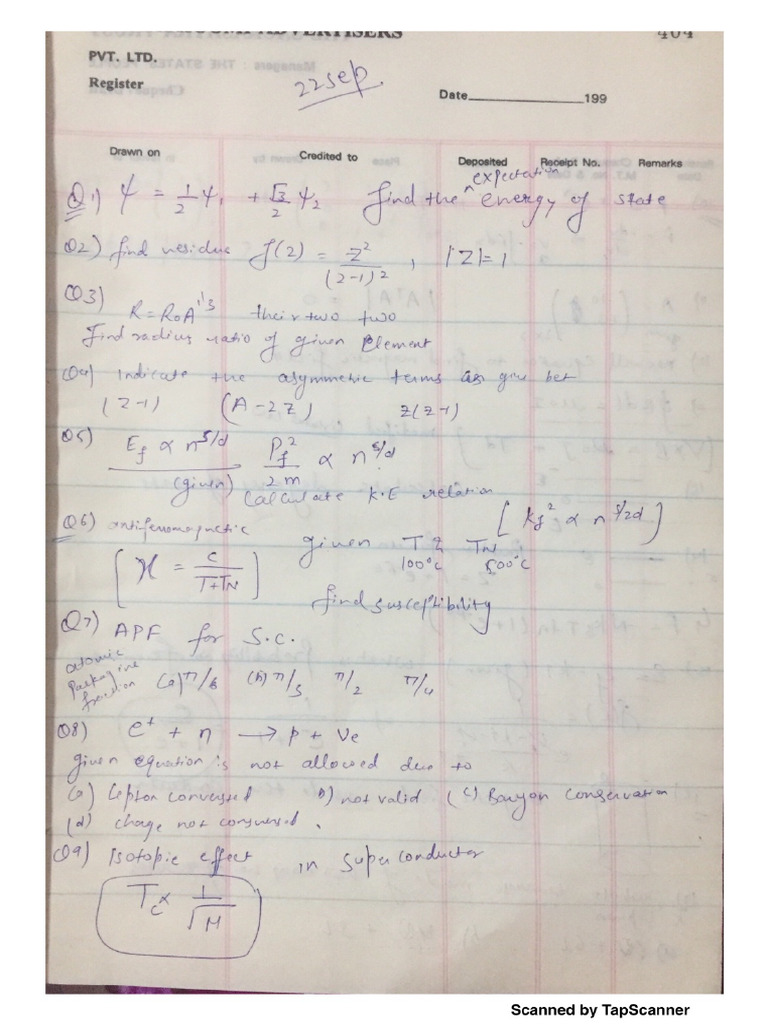 ADVERTISERS 404
PVT. LTD.
Register 22 Sep Date 199
Drawn on Credited to Deposited Receipt No. Remarks
Q1) ψ = 1/2 ψ1 + √3/2 ψ2 find the expectation energy of state
Q2) find residue f(2) = Z²/(2-1)², |Z|=1
Q3) R = R0A^1/3 their two two
Find radius ratio of given Element
Q4) indicate the asymmetric terms as give bet
(Z-1) (A-2Z) Z(Z-1)
Q5) Ef ∝ n^5/d Pf²/2m ∝ n^5/d
(given) Calculate K.E relation
[kf² ∝ n^5/2d]
Q6) antiferromagnetic given T & TN
100°C 500°C
[χ = C/T+TN]
find susceptibility
Q7) APF for S.C.
atomic packaging fraction (a) π/6 (b) π/3 π/2 π/4
Q8) e⁺ + n → p + νe
given equation is not allowed due to
(a) Lepton conversed b) not valid (c) Baryon conservation
(d) charge not conserved.
Q9) Isotopic effect in superconductor
Tc ∝ 1/√M
Scanned by TapScanner